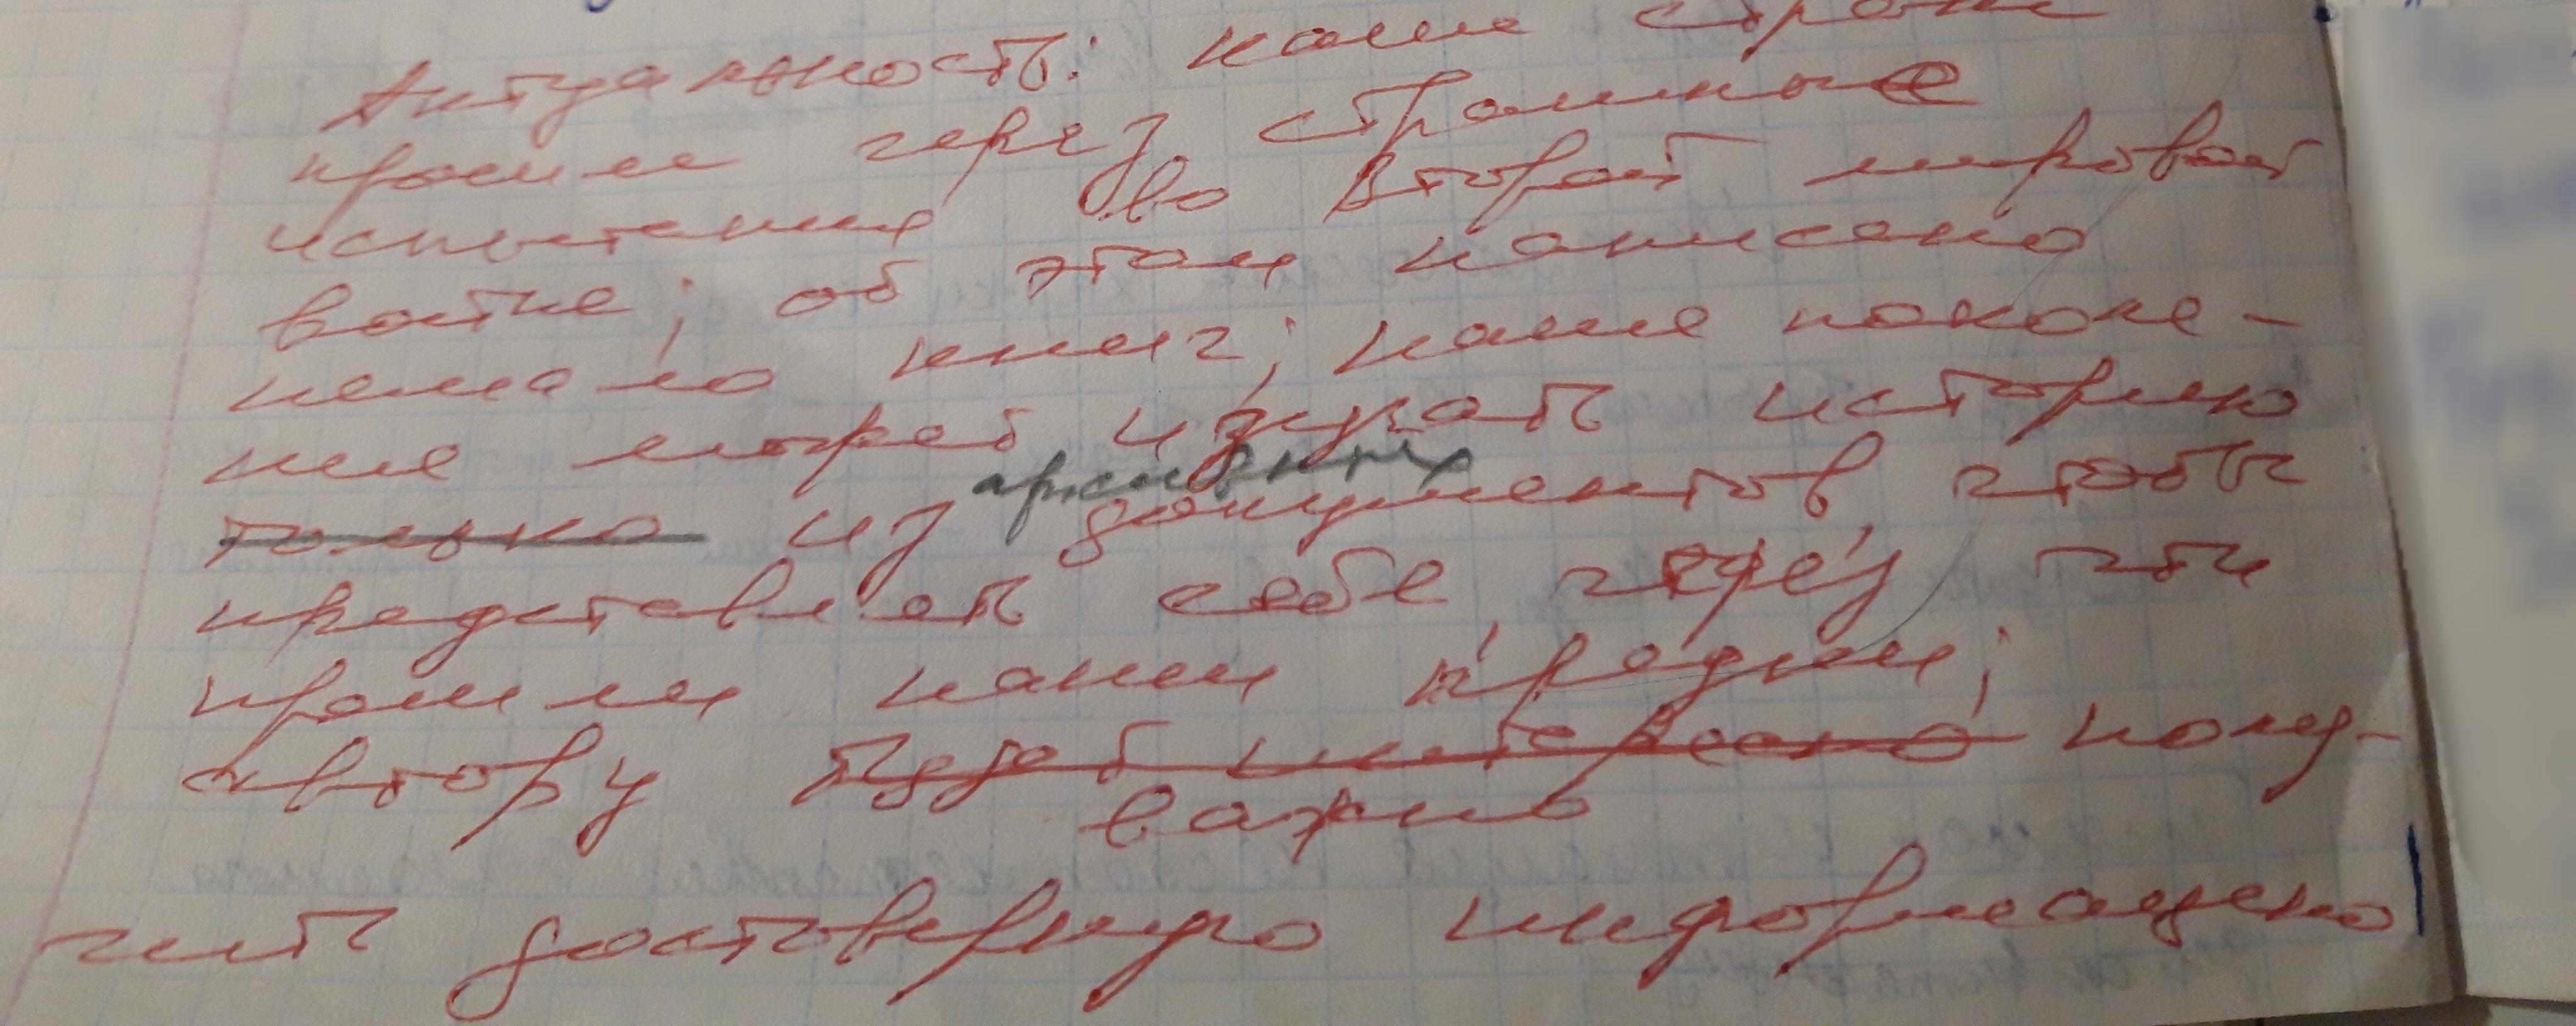 Актуальность: наша страна
прошла через страшные
испытания во Второй мировой
войне; об этом написано
немало книг; наше поколе-
ние может изучать историю
только из архивных документов, чтобы
представлять себе, через что
прошли наши предки;
автору будет интересно полу-
важно
чить достоверную информацию